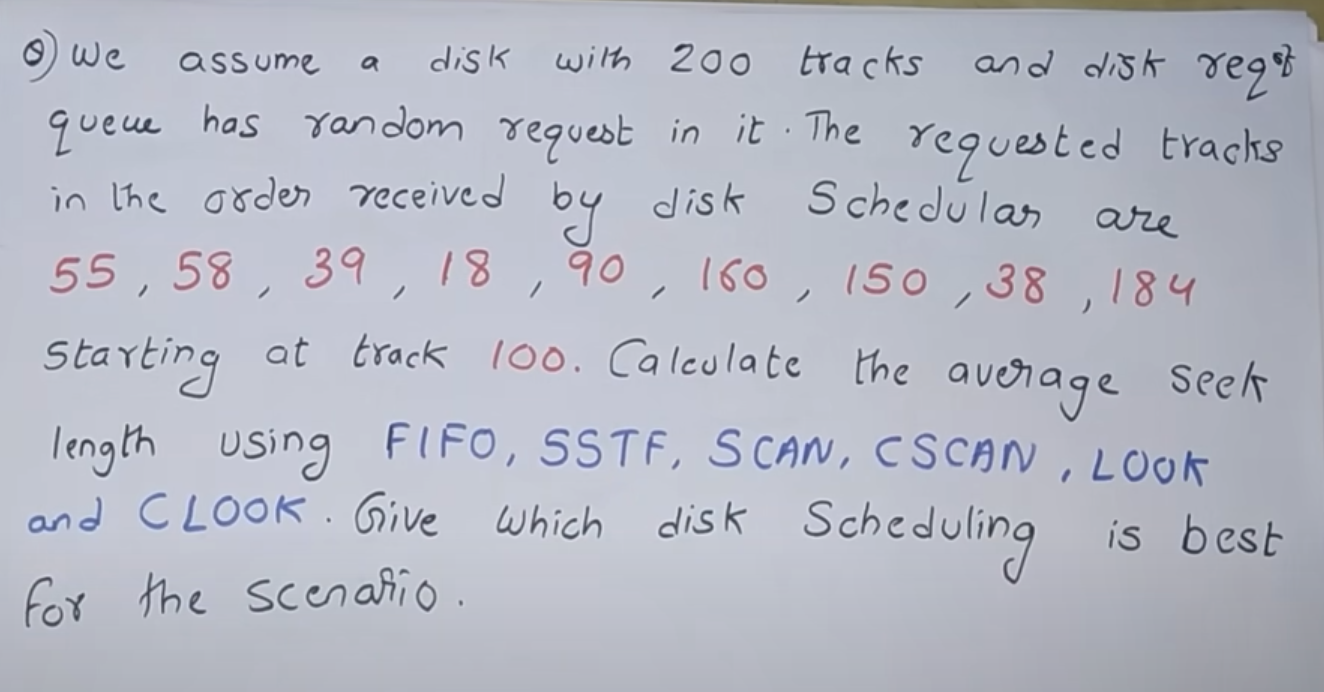 Q) We assume a disk with 200 tracks and disk reqst
queue has random request in it. The requested tracks
in the order received by disk Schedular are
55, 58, 39, 18, 90, 160, 150, 38, 184
Starting at track 100. Calculate the average seek
length using FIFO, SSTF, SCAN, CSCAN, LOOK
and CLOOK. Give which disk Scheduling is best
for the scenario.